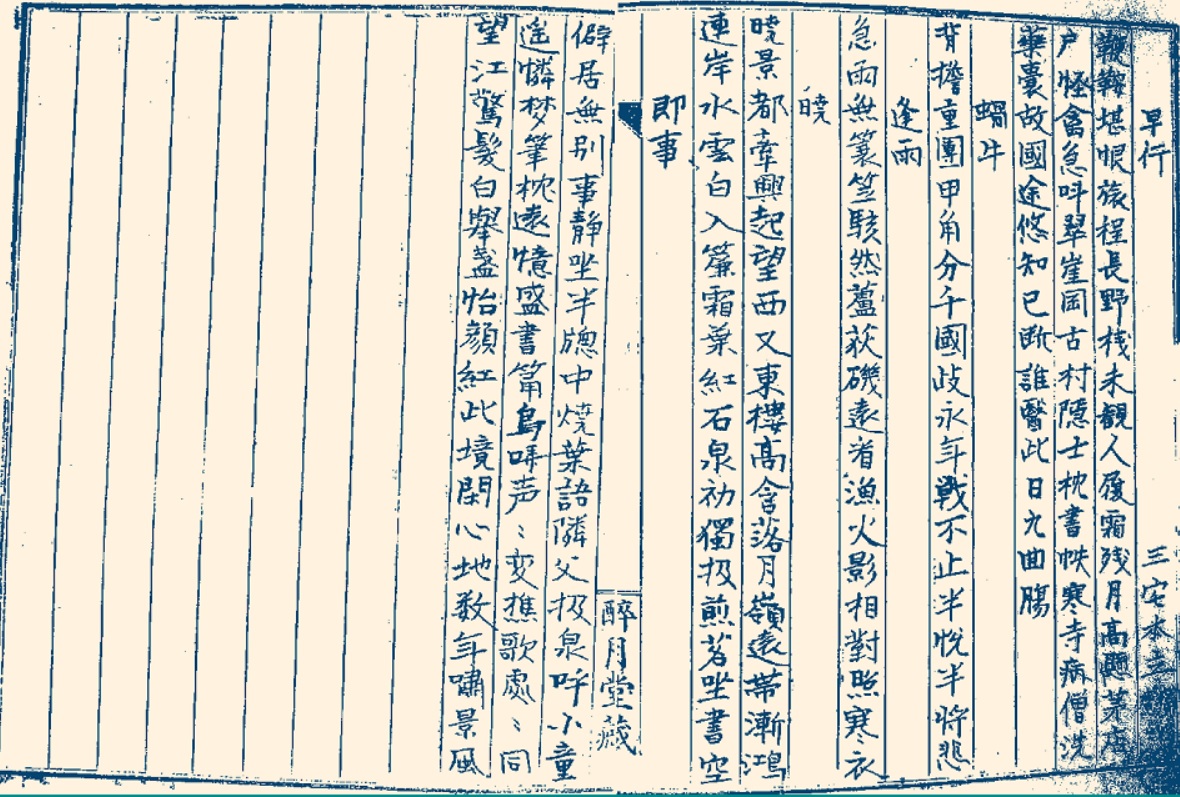 早行
三宅本
鞍堪恨旅程長野棧未覩人履霜残月高懸茅店
户怪禽急呌翠崖岡古村隠士枕書帙寒寺病僧洗
藥囊故國途悠知已断誰醫此日九曲腸
蝸牛
背擔重團甲角分千國歧永年戰不止半悦半將悲
逢雨
急雨無簑笠駭然蘆荻磯遠渚漁火影相對照寒衣
暁
暁景都牽興起望西又東樓高含落月嶺遠帯漸鴻
連岸水雲白入簾霜葉紅石泉初獨扱煎茗坐書空
即事
醉月堂藏
僻居無别事静坐半牕中燒葉語隣父扱泉呼小童
遥憐梦筆枕遠憶盛書篇鳥哢声〻変樵歌處〻同
望江驚髪白舉盞怡顔紅此境閑心地数年嘯景風